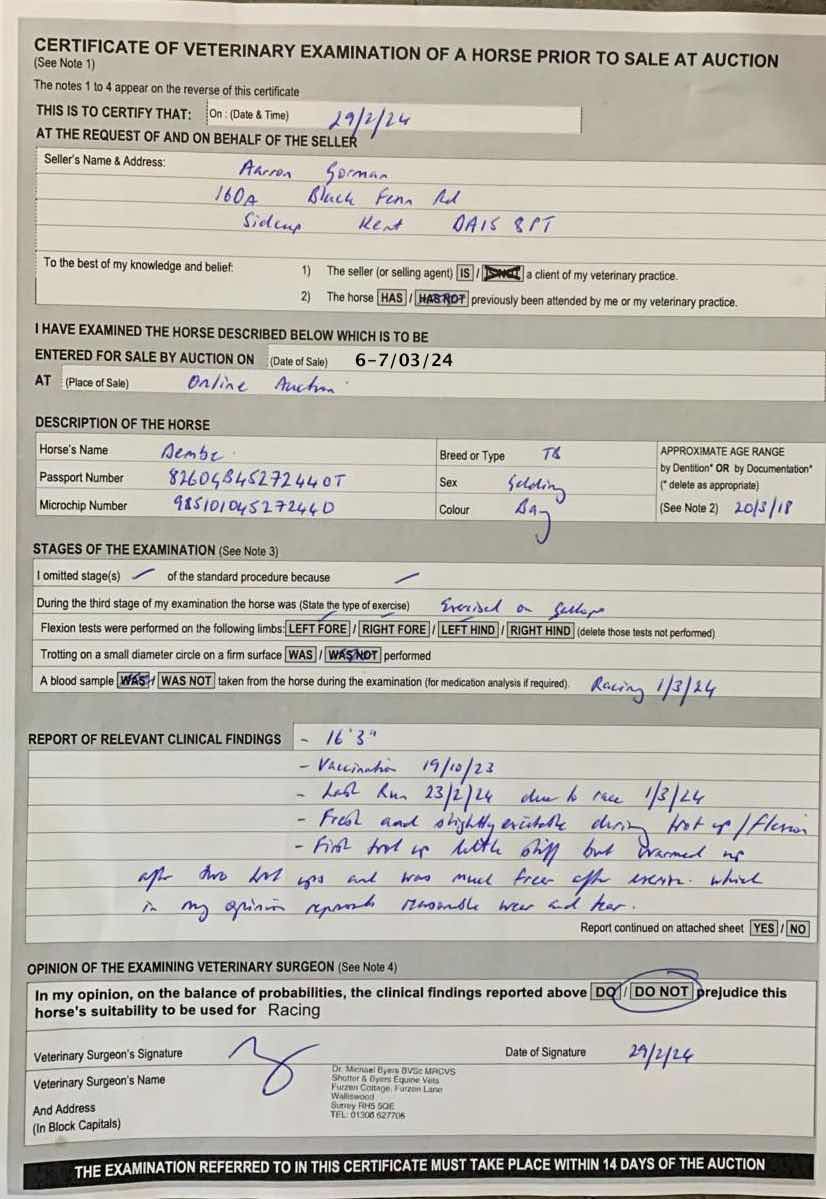 CERTIFICATE OF VETERINARY EXAMINATION OF A HORSE PRIOR TO SALE AT AUCTION
(See Note 1)
The notes 1 to 4 appear on the reverse of this certificate
THIS IS TO CERTIFY THAT: On : (Date & Time) 29/2/24
AT THE REQUEST OF AND ON BEHALF OF THE SELLER
Seller's Name & Address: Aarron Gorman
160A Black Fenn Rd
Sidcup Kent DA15 8PT
To the best of my knowledge and belief: 1) The seller (or selling agent) IS / IS NOT a client of my veterinary practice.
2) The horse HAS / HAS NOT previously been attended by me or my veterinary practice.
I HAVE EXAMINED THE HORSE DESCRIBED BELOW WHICH IS TO BE
ENTERED FOR SALE BY AUCTION ON (Date of Sale) 6-7/03/24
AT (Place of Sale) Online Auction
DESCRIPTION OF THE HORSE
Horse's Name Dembe Breed or Type TB APPROXIMATE AGE RANGE
by Dentition* OR by Documentation*
Passport Number 82604B45272440T Sex Gelding (* delete as appropriate)
Microchip Number 985101045272440 Colour Bay (See Note 2) 20/3/18
STAGES OF THE EXAMINATION (See Note 3)
I omitted stage(s) — of the standard procedure because —
During the third stage of my examination the horse was (State the type of exercise) Exercised on gallops
Flexion tests were performed on the following limbs: LEFT FORE / RIGHT FORE / LEFT HIND / RIGHT HIND (delete those tests not performed)
Trotting on a small diameter circle on a firm surface WAS / WAS NOT performed
A blood sample WAS / WAS NOT taken from the horse during the examination (for medication analysis if required). Racing 1/3/24
REPORT OF RELEVANT CLINICAL FINDINGS - 16'3"
- Vaccination 19/10/23
- Last Run 23/2/24 due to race 1/3/24
- Fresh and slightly excitable during trot up/flexion
- First trot up little stiff but warmed up
after two trot ups and was much freer after exercise. which
in my opinion represents reasonable wear and tear.
Report continued on attached sheet YES / NO
OPINION OF THE EXAMINING VETERINARY SURGEON (See Note 4)
In my opinion, on the balance of probabilities, the clinical findings reported above DO / DO NOT prejudice this
horse's suitability to be used for Racing
Veterinary Surgeon's Signature Date of Signature 29/2/24
Veterinary Surgeon's Name
And Address
(In Block Capitals)
Dr. Michael Byers BVSc MRCVS
Shotter & Byers Equine Vets
Furzen Cottage, Furzen Lane
Walliswood
Surrey RH5 5QE
TEL: 01306 627706
THE EXAMINATION REFERRED TO IN THIS CERTIFICATE MUST TAKE PLACE WITHIN 14 DAYS OF THE AUCTION